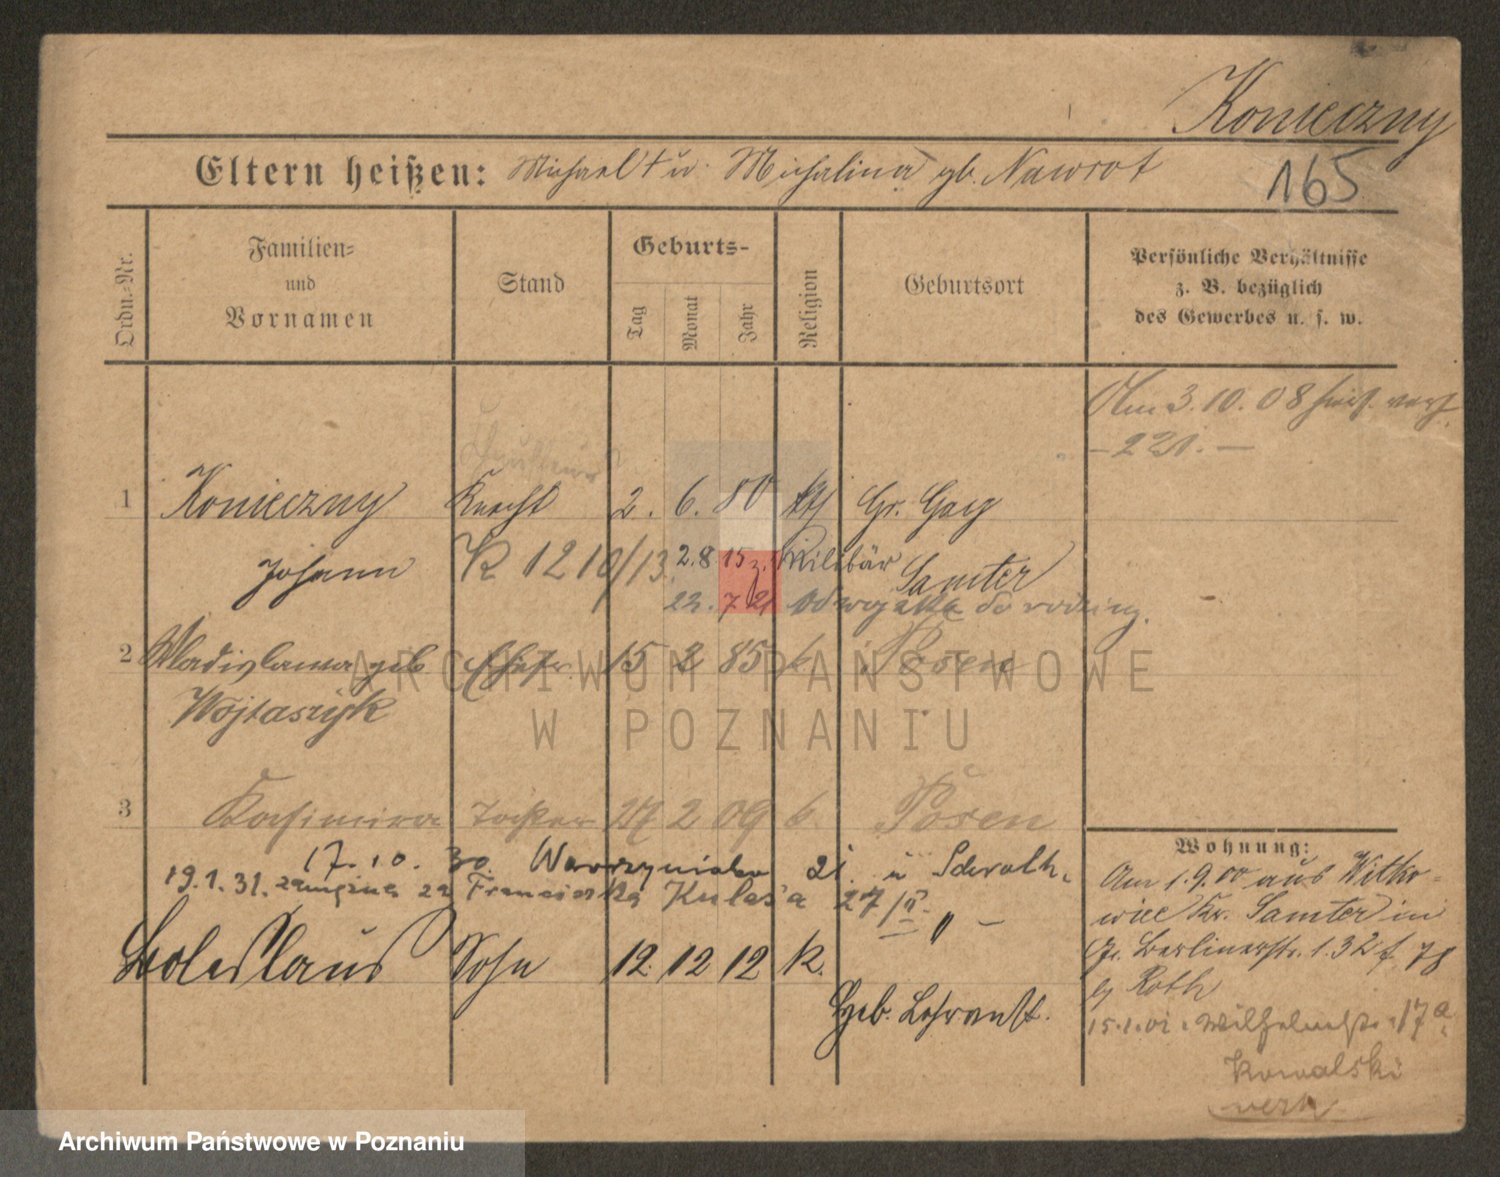 Konieczny
Eltern heißen: Michael † u. Michalina gb. Nawrot
165
Ordn.-Nr.
Familien-
und
Vornamen
Stand
Geburts-
Tag
Monat
Jahr
Religion
Geburtsort
Persönliche Verhältnisse
z. B. bezüglich
des Gewerbes u. s. w.
Am 3.10.08
- 221. -
1 Konieczny Knecht 2. 6. 80 kth Gr. Gay
Johann K 1210/13. 2.8 15 z. Militär Samter
22. 7 21 do rodziny.
2 Wladislawa geb Ehefr. 15 2 85 k Posen
Wojtaszyk
3 Kasimira Tochter 27 2 09 k. Posen
17. 10. 30 21.
19.1.31. Franciszka 27/II
" -
Boleslaus Sohn 12. 12 12 k.
Geb.
Wohnung:
Am 1.9.00 aus Witko-
wice Kr. Samter in
Gr. Berlinerstr.
b/ Roth
15.1.01. Wilhelmstr. 17a
Kowalski
verh
ARCHIWUM PAŃSTWOWE
W POZNANIU
Archiwum Państwowe w Poznaniu